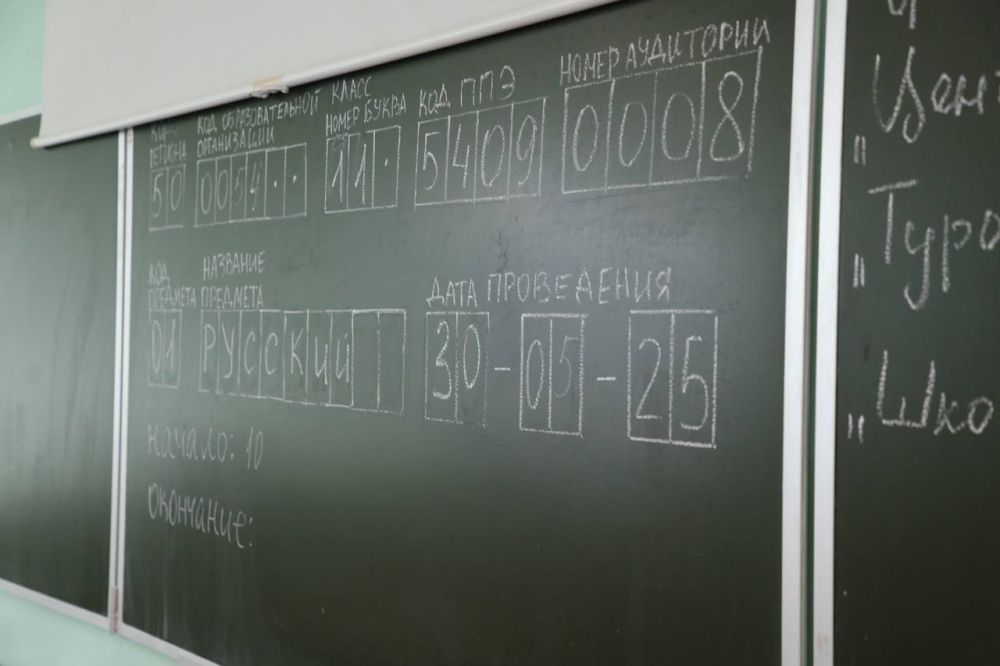 КОД РЕГИОНА
КОД ОБРАЗОВАТЕЛЬНОЙ ОРГАНИЗАЦИИ
КЛАСС
НОМЕР БУКВА
КОД ППЭ
НОМЕР АУДИТОРИИ
50
0054··
11·
5409
0008
КОД ПРЕДМЕТА
НАЗВАНИЕ ПРЕДМЕТА
ДАТА ПРОВЕДЕНИЯ
01
РУССКИЙ
30-05-25
начало: 10
окончание: